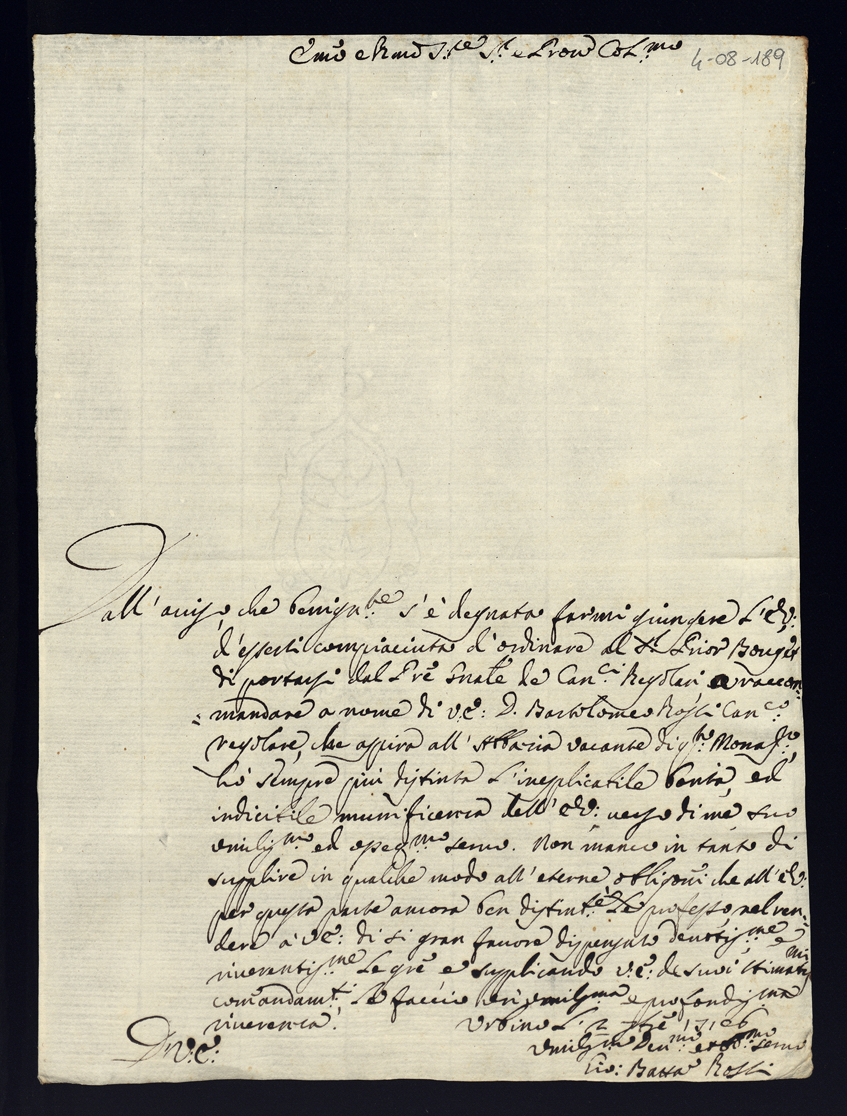 Emõ e Rmõ S.re S.r e Prõn Col.mo
4-08-189
Dall'aviso che benignte s'è degnata farmi giungere l'E.V:
d'essersi compiaciuta d'ordinare al S.r Prior
di portarsi dal Pre Gnale de Can.ci Regolari a raccom-
mandare a nome di V.E: D. Bartolomeo Rossi Can.co
regolare, che aspira all'Abbazia vacante di q.to Monas.ro
hò sempre più distinta l'inesplicabile bontà, ed
indicibile munificenza dell'E.V: verso di me suo
umiliss.mo ed osseq.mo servo. Non manco in tanto di
supplire in qualche modo all'eterne obligoni che all'E.V:
per questa parte ancora ben distint.te Le professo nel ren-
dere à V.E: di si gran favore dispensato devotis.me e
riverentis.me Le gre e supplicando V.E: de suoi stimatis.mi
comandam.ti Le faccio umilissma e profondissma
riverenza. Urbino L. 2
D. V.E: umiliss.mo Dev.mo et Obb.mo servo
Gio: Batta Rossi